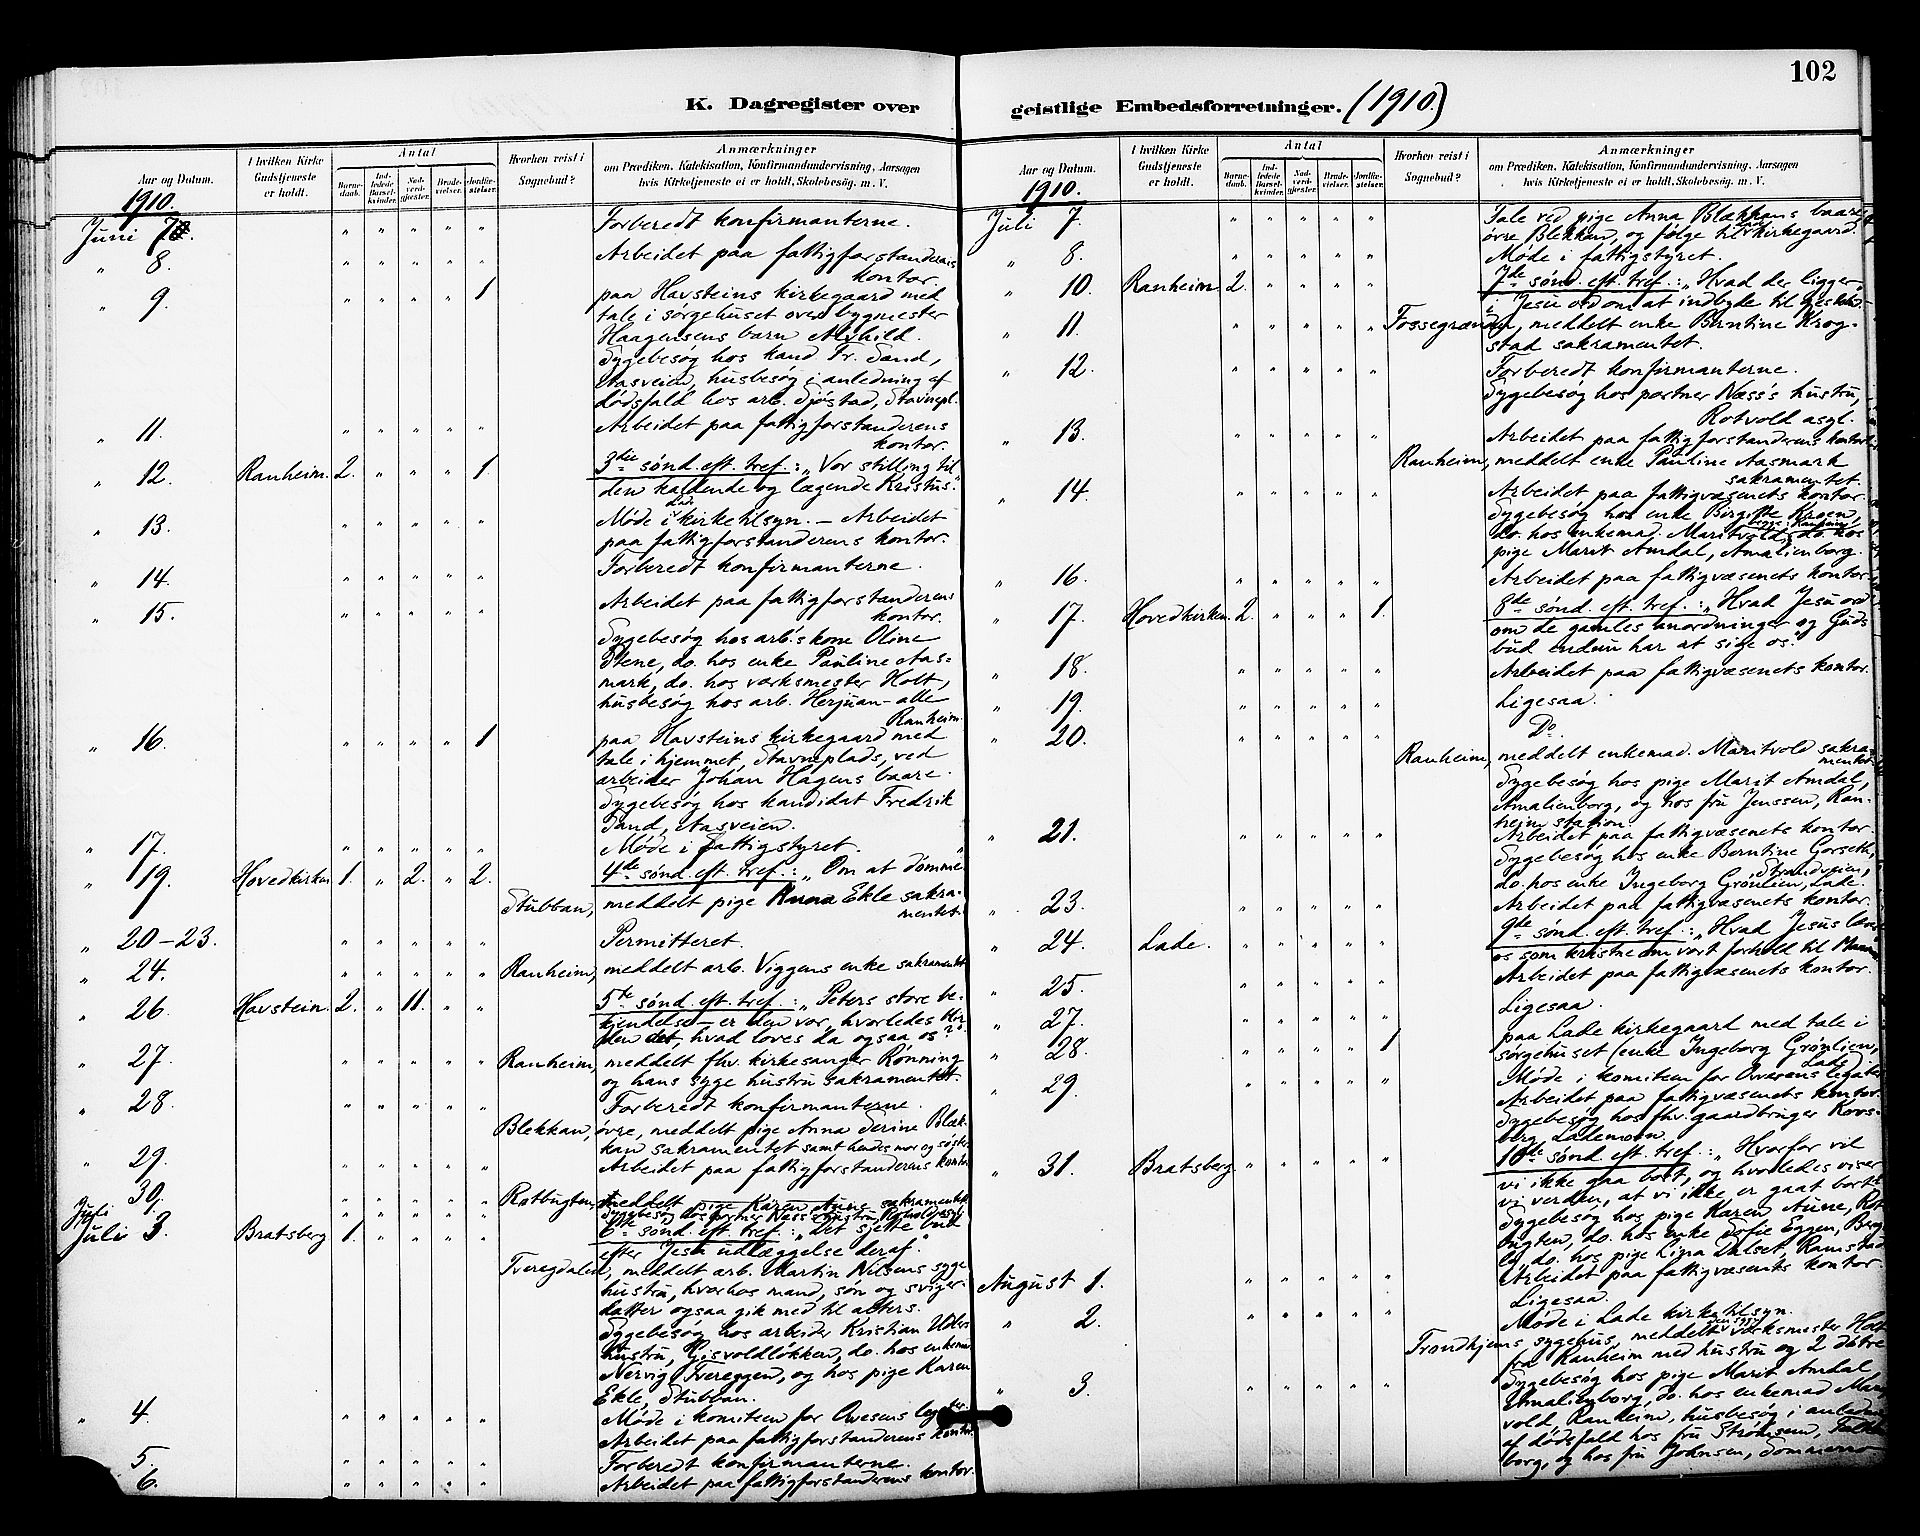 102
K. Dagregister over
geistlige Embedsforretninger. (1910.)
Aar og Datum.
I hvilken Kirke Gudstjeneste er holdt.
Antal
Barnedaab.
Indledede Barselkvinder.
Nadverdgjester.
Brudevielser.
Jordfæstelser.
Hvorhen reist i Sognebud?
Anmærkninger
om Prædiken, Katekisation, Konfirmandundervisning, Aarsagen
hvis Kirketjeneste ei er holdt, Skolebesøg. m. V.
1910.
Juni 7. " " " " " Forberedt konfirmanterne.
" 8. " " " " " Arbeidet paa fattigforstanderens
kontor.
" 9. " " " " 1 paa Havsteins kirkegaard med
tale i sørgehuset over bygmester
Haagensens barn Alvhild.
Sygebesøg hos kand. Fr. Sand,
Aasveien, husbesøg i anledning af
dødsfald hos arb. Sjøstad, Stavnepl.
" 11. " " " " " Arbeidet paa fattigforstanderens
kontor.
" 12. Ranheim. 2. " " " 1 3die sønd. eft. tref.: „Vor stilling til
den kaldende og lægende Kristus."
" 13. " " " " " Møde i kirketilsyn. – Arbeidet
paa fattigforstanderens kontor.
" 14. " " " " " Forberedt konfirmanterne.
" 15. " " " " " Arbeidet paa fattigforstanderens
kontor.
Sygebesøg hos arb's kone Oline
Stene, do. hos enke Pauline Aas=
mark, do. hos værksmester Holt,
husbesøg hos arb. Herjuan – alle
Ranheim.
" 16. " " " " 1 paa Havsteins kirkegaard med
tale i hjemmet, Stavneplads, ved
arbeider Johan Hagens baare.
Sygebesøg hos kandidat Fredrik
Sand, Aasveien.
" 17. " " " " " Møde i fattigstyret.
" 19. Hovedkirken 1. " 2. " 2. 4de sønd. eft. tref.: „Om at dømme."
Stubban, meddelt pige Karen Ekle sakra-
mentet.
" 20–23. " " " " " Permitteret.
" 24. " " " " " Ranheim, meddelt arb. Viggens enke sakramentet
" 26. Havstein. 2. " 11. " " 5te sønd. eft. tref.: „Peters store be-
kjendelse – er den vor, hvorledes blir
den det, hvad loves da ogsaa os?"
" 27. " " " " " Ranheim, meddelt fhv. kirkesanger Rønning
og hans syge hustru sakramentet.
" 28. " " " " " Forberedt konfirmanterne.
Blekkan, øvre, meddelt pige Anna Serine Blæk-
kan sakramentet samt hendes mor og søster
" 29. " " " " " Arbeidet paa fattigforstanderens kontor
" 30. " " " " " Rotbugten, meddelt pige Karen Aune sakramentet
Juli " " " " " Sygebesøg hos portner Næss's hustru, Rotvold asyl
Juli 3. Bratsberg 1. " " " " 6te sønd. eft. tref.: „Det sjette bud
efter Jesu udlæggelse deraf."
Tveregdalen, meddelt arb. Martin Nilsens syge
hustru, hvorhos mand, søn og sviger-
datter ogsaa gik med til alters.
Sygebesøg hos arbeider Kristian Uders
hustru, Gisvoldløkken, do. hos enkemad
Nervig Tvereggen, og hos pige Karen
Ekle, Stubban.
" 4. " " " " " Møde i komiteen for Ovesens legater
Arbeidet paa fattigforstanderens kontor.
5. " " " " " Forberedt konfirmanterne.
6. " " " " " Arbeidet paa fattigforstanderens kontor.
Aar og Datum.
I hvilken Kirke Gudstjeneste er holdt.
Antal
Barnedaab.
Indledede Barselkvinder.
Nadverdgjester.
Brudevielser.
Jordfæstelser.
Hvorhen reist i Sognebud?
Anmærkninger
om Prædiken, Katekisation, Konfirmandundervisning, Aarsagen
hvis Kirketjeneste ei er holdt, Skolebesøg. m. V.
1910.
Juli 7. " " " " " Tale ved pige Anna Blækkans baare,
øvre Blekkan, og følge til kirkegaard.
" 8. " " " " " Møde i fattigstyret.
" 10. Ranheim 2. " " " " 7de sønd. eft. tref.: „Hvad der ligger
i Jesu ord om at indbyde til gjestebud."
" 11. " " " " " Fossegrænden, meddelt enke Berntine Krog-
stad sakramentet.
" 12. " " " " " Forberedt konfirmanterne.
Sygebesøg hos portner Næss's hustru,
Rotvold asyl.
" 13. " " " " " Arbeidet paa fattigforstanderens kontor.
Ranheim, meddelt enke Pauline Aasmark
sakramentet.
" 14. " " " " " Arbeidet paa fattigvæsenets kontor.
Sygebesøg hos enke Birgitte Kroen,
do. hos enkemad. Maritvold, begge Ranheim, do. hos
pige Marit Amdal, Amalienborg.
" 16. " " " " " Arbeidet paa fattigvæsenets kontor.
" 17. Hovedkirken. 2. " " " 1. 8de sønd. eft. tref.: „Hvad Jesu ord
om de gamles anordninger og Guds
bud endnu har at sige os."
" 18. " " " " " Arbeidet paa fattigvæsenets kontor.
" 19. " " " " " Ligesaa.
" 20. " " " " " Do
Ranheim, meddelt enkemad. Maritvold sakra-
mentet.
Sygebesøg hos pige Marit Amdal,
Amalienborg, og hos fru Jenssen, Ran-
heim station.
" 21. " " " " " Arbeidet paa fattigvæsenets kontor.
Sygebesøg hos enke Berntine Gorseth,
Strandveien,
do. hos enke Ingeborg Grønlien, Lade.
" 23. " " " " " Arbeidet paa fattigvæsenets kontor.
" 24. Lade. " " " " " 9de sønd. eft. tref.: „Hvad Jesus lærer
os som kristne om vort forhold til
" 25. " " " " " Arbeidet paa fattigvæsenets kontor.
" 27. " " " " " Ligesaa.
" 28. " " " " 1 paa Lade kirkegaard med tale i
sørgehuset (enke Ingeborg Grønlien,
Lade)
" 29. " " " " " Møde i komiteen for Ovesens legater
Arbeidet paa fattigvæsenets kontor.
Sygebesøg hos fhv. gaardbruger Kors-
berg, Lademoen.
" 31. Bratsberg " " " " " 10de sønd. eft. tref.: „Hvorfor vil
vi ikke gaa bort, og hvorledes viser
vi verden, at vi ikke er gaat bort."
Sygebesøg hos pige Karen Aune, Rot-
bugten, do. hos enke Sofie Eggen, Berg
do. hos pige Lina Dalset, Ramstad
August 1. " " " " " Arbeidet paa fattigvæsenets kontor.
Ligesaa.
" 2. " " " " " Møde i Lade kirketilsyn.
Trondhjems sygehus, meddelt den syge værksmester Holt
fra Ranheim med hustru og 2 døtre
" 3. " " " " " Sygebesøg hos pige Marit Amdal
Amalienborg, do. hos enkemad Marit-
vold, Ranheim, husbesøg i anledning
af dødsfald hos fru Strømsem,
borg, og hos fru Johnsen,